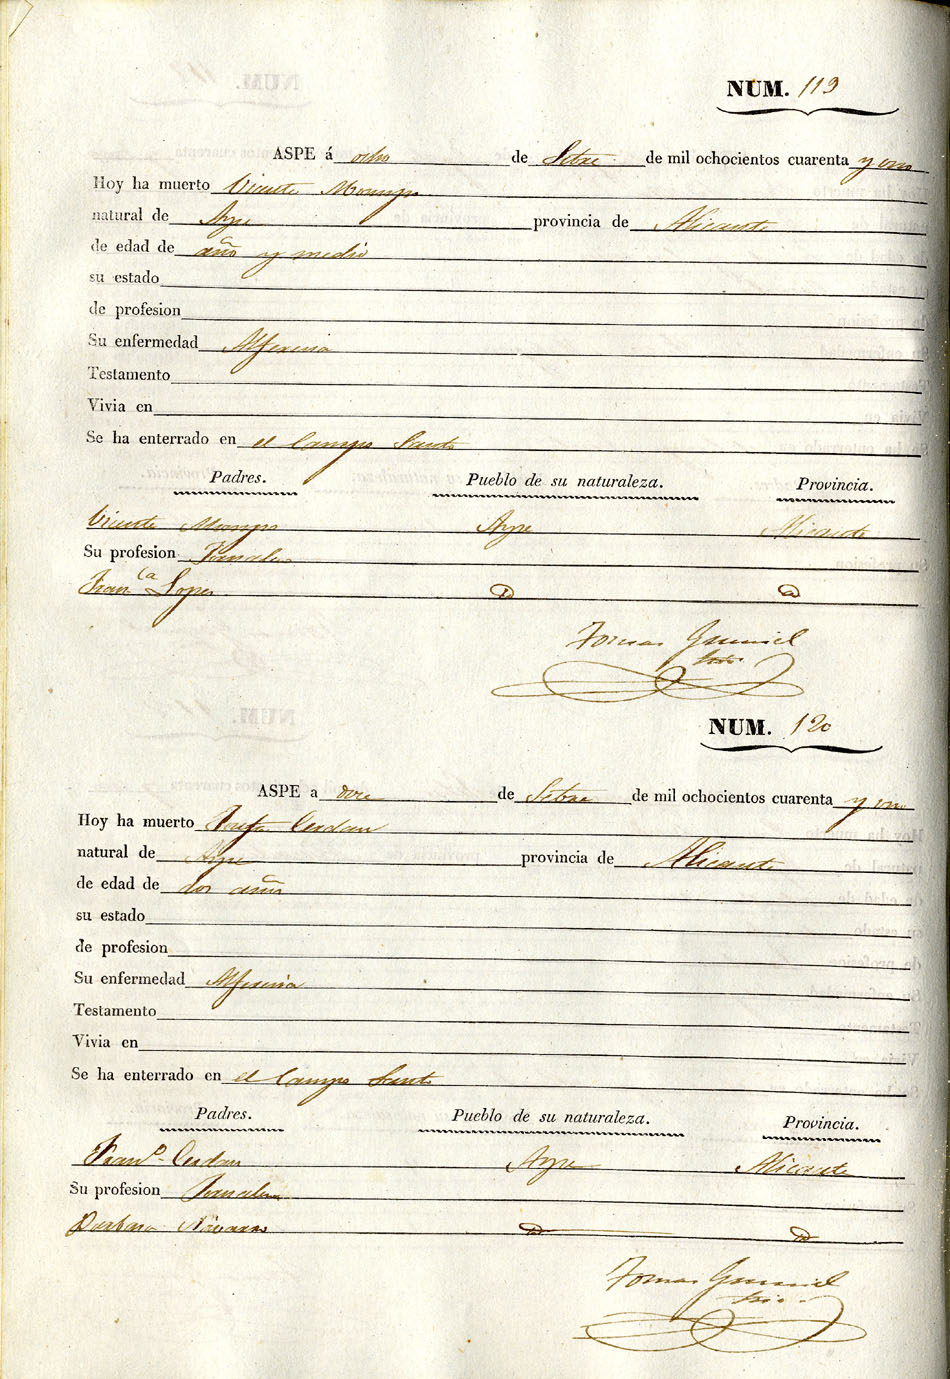 NUM. 119
ASPE á ocho de Setre de mil ochocientos cuarenta y uno
Hoy ha muerto Vicente
natural de Aspe provincia de Alicante
de edad de año y medio
su estado
de profesion
Su enfermedad Alferecia
Testamento
Vivia en
Se ha enterrado en el Campo Santo
Padres. Pueblo de su naturaleza. Provincia.
Vicente Aspe Alicante
Su profesion Jornalero
Franca Lopes Id Id
Tomas
NUM. 120
ASPE a doce de Setbre de mil ochocientos cuarenta y uno
Hoy ha muerto Josefa Cerdan
natural de Aspe provincia de Alicante
de edad de dos años
su estado
de profesion
Su enfermedad Alferecia
Testamento
Vivia en
Se ha enterrado en el Campo Santo
Padres. Pueblo de su naturaleza. Provincia.
Frano Cerdan Aspe Alicante
Su profesion Jornalero
Barbara Navarro Id Id
Tomas